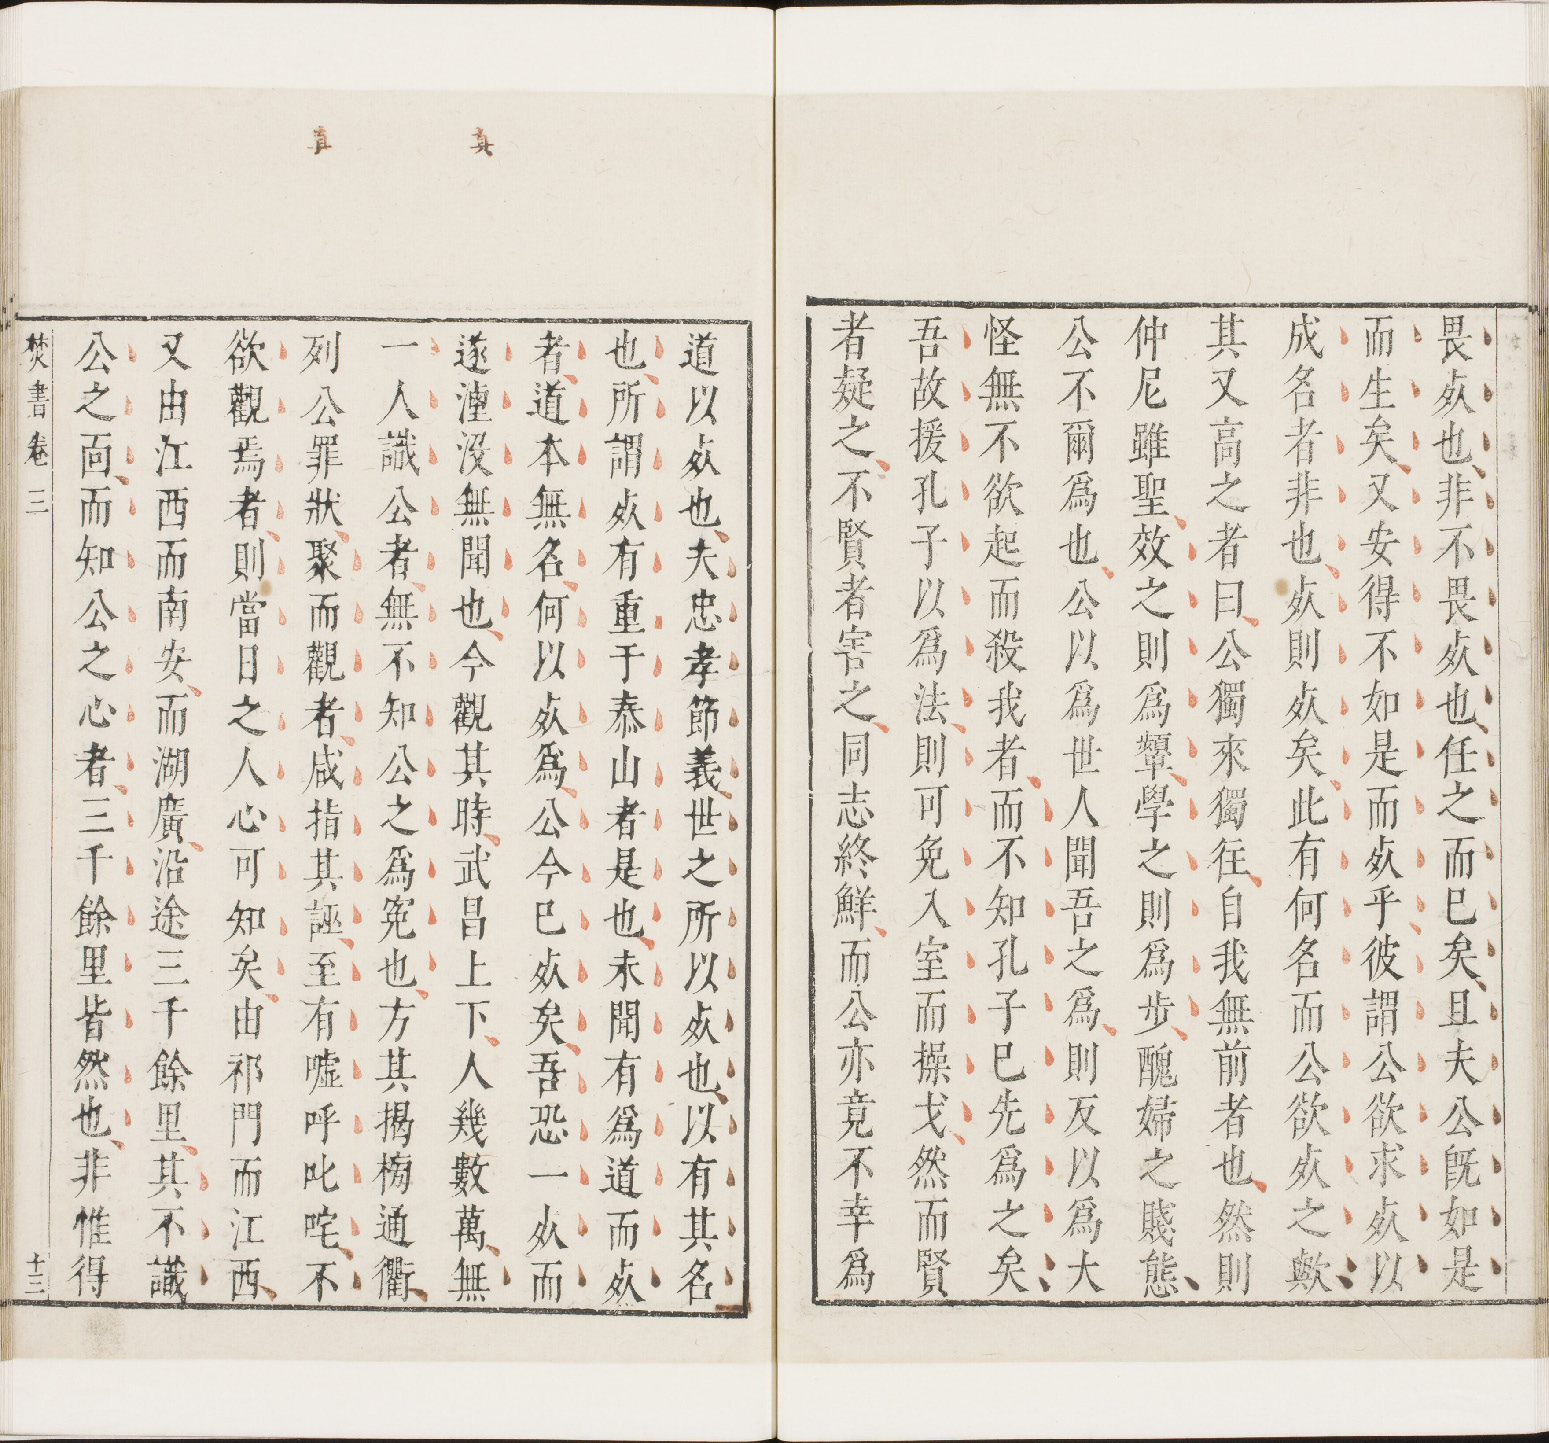 畏㱠也非不畏㱠也任之而已矣且夫公旣如是
而生矣又安得不如是而㱠乎彼謂公欲求㱠以
成名者非也㱠則㱠矣此有何名而公欲㱠之歟
其又高之者曰公獨來獨往自我無前者也然則
仲尼雖聖效之則爲顰學之則爲步醜婦之賤態
公不爾爲也公以爲世人聞吾之爲則反以爲大
怪無不欲起而殺我者而不知孔子已先爲之矣
吾故援孔子以爲法則可免入室而操戈然而賢
者疑之不賢者害之同志終鮮而公亦竟不幸爲
道以㱠也夫忠孝節義世之所以㱠也以有其名
也所謂㱠有重于泰山者是也未聞有爲道而㱠
者道本無名何以㱠爲公今已㱠矣吾恐一㱠而
遂湮沒無聞也今觀其時武昌上下人幾數萬無
一人識公者無不知公之爲寃也方其揭榜通衢
列公罪狀聚而觀者咸指其誣至有噓呼叱咤不
欲觀焉者則當日之人心可知矣由祁門而江西
又由江西而南安而湖廣沿途三千餘里其不識
公之面而知公之心者三千餘里皆然也非惟得
焚書卷三
十三
真
真